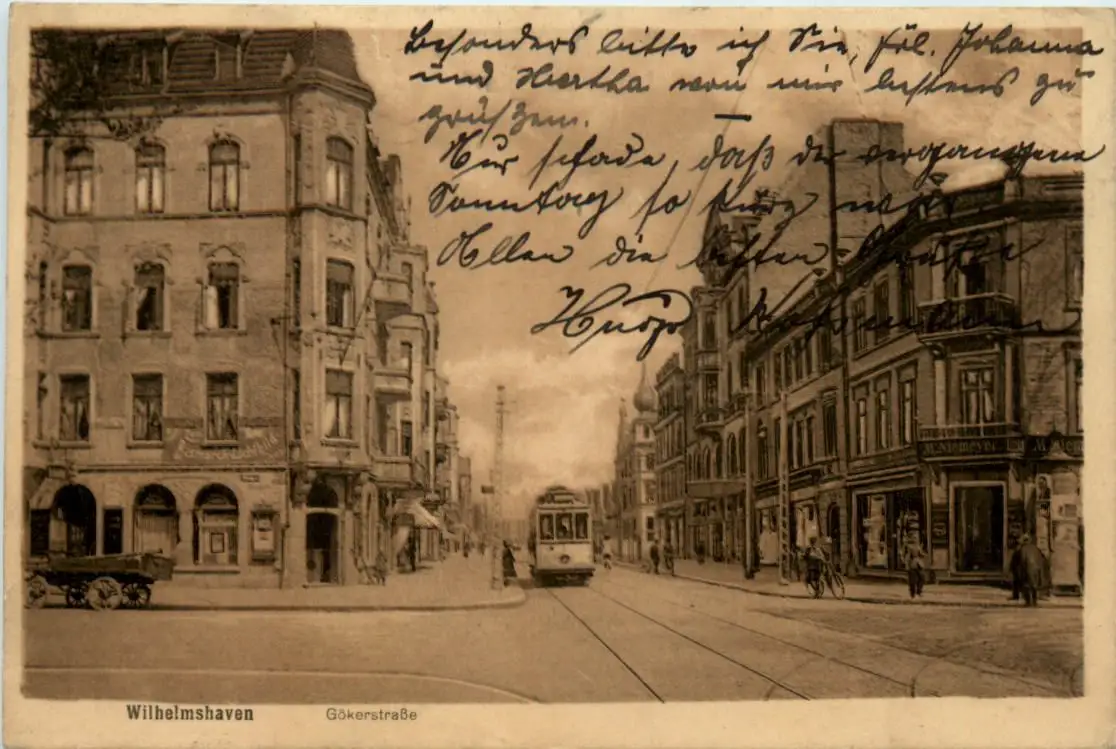 Besonders bitte ich Sie, Frl. Johanna
und Hertha von mir bestens zu
grüßen.
Nur schade, daß der vergangene
Sonntag so kurz war.
Allen die besten Grüße
Wilhelmshaven Gökerstraße